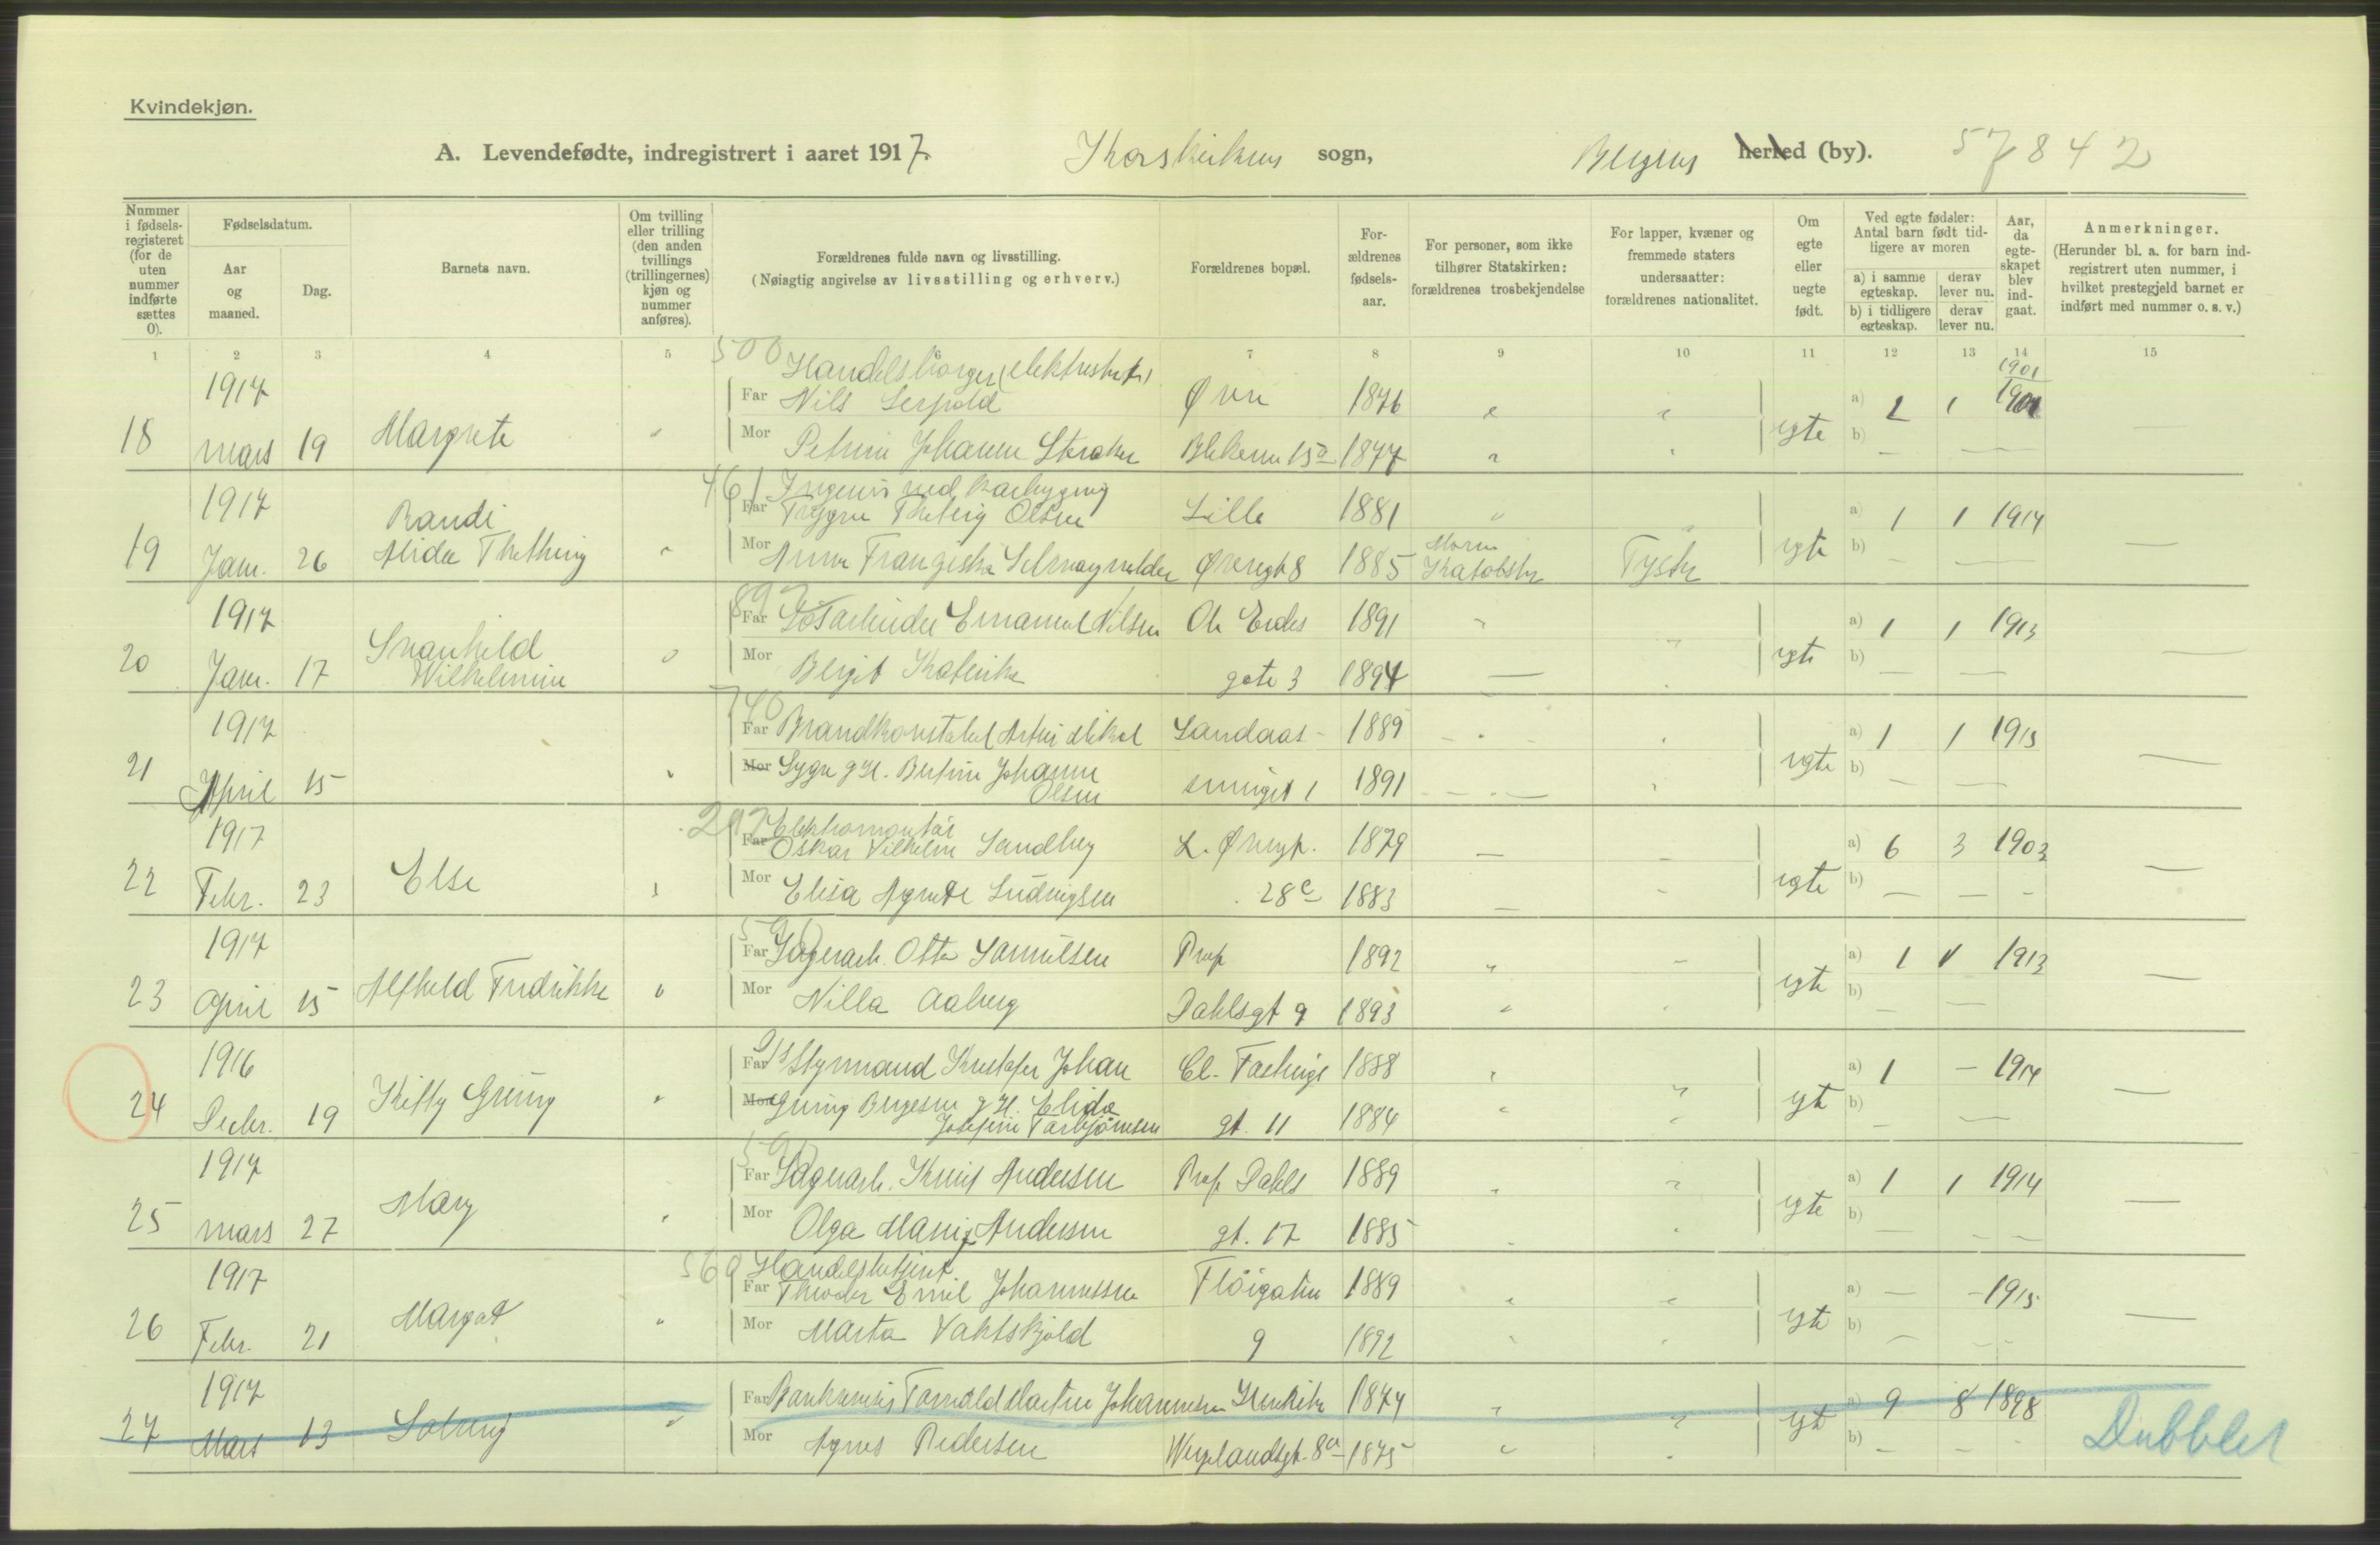 Kvindekjøn.
A. Levendefødte, indregistrert i aaret 1917 Korskirkens sogn, Bergens herred (by). 57842
Nummer i fødsels-registeret (for de uten nummer indførte sættes 0).
Fødselsdatum.
Aar og maaned.
Dag.
Barnets navn.
Om tvilling eller trilling (den anden tvillings (trillingernes) kjøn og nummer anføres).
Forældrenes fulde navn og livsstilling.
(Nøiagtig angivelse av livsstilling og erhverv.)
Forældrenes bopæl.
For-ældrenes fødsels-aar.
For personer, som ikke tilhører Statskirken: forældrenes trosbekjendelse
For lapper, kvæner og fremmede staters undersaatter: forældrenes nationalitet.
Om egte eller uegte født.
Ved egte fødsler: Antal barn født tid-ligere av moren
a) i samme egteskap. derav lever nu.
b) i tidligere egteskap. derav lever nu.
Aar, da egte-skapet blev ind-gaat.
Anmerkninger.
(Herunder bl. a. for barn ind-registrert uten nummer, i hvilket prestegjeld barnet er indført med nummer o. s. v.)
1 2 3 4 5 6 7 8 9 10 11 12 13 14 15
500 Handelsborger 1901
1917 Far Nils Øvre 1876 a) 2 1
18 mars 19 Margrete Mor 15a 1877 egte b)
461
1917 Randi Far Olsen Lille 1881 a) 1 1 1914
19 Jan. 26 Alida Mor Anna Franziska Øvregt 8 1885 Moren Katolsk Tysk egte b)
1917 Far Løsarbeider Emanuel Nilsen 1891 a) 1 1 1913
20 Jan. 17 Svanhild Wilhelmine Mor Bergit gate 3 1894 egte b)
740
1917 Far Brandkonstabel Landaas- 1889 a) 1 1 1915
21 April 15 Mor Johanne Olsen svinget 1 1891 egte b)
Elektromontør
1917 Far Oskar Vilhelm Sandberg L. Øvregt. 1879 a) 6 3 1903
22 Febr. 23 Else Mor Elisa Agnete Ludvigsen 28c 1883 egte b)
1917 Far Lagerarb. Otto Samuelsen Prof 1892 a) 1 1 1913
23 April 15 Alfhild Fredrikke Mor Nilla Aaberg Dahlsgt 9 1893 egte b)
1916 Far Styrmand Kristofer Johan Cl. 1888 a) 1 - 1914
24 Decbr. 19 Kitty Grung Mor Grung Bergesen g. H. Elida Josefine Torbjørnsen gt. 11 1884 egte b)
1917 Far Lagerarb. Knut Andersen Prof Dahls 1889 a) 1 1 1914
25 mars 27 Mary Mor Olga Marie Andersen gt. 17 1885 egte b)
560 Handelsbetjent
1917 Far Theodor Emil Johannessen Fløigaten 1889 a) - - 1915
26 Febr. 21 Margot Mor Marta Vaktskjold 9 1892 egte b)
1917 Far Martin Johannessen Henrik 1874 a) 9 8 1898
27 Mars 13 Solveig Mor Agnes Pedersen Wergelandsgt. 8a 1875 egte b) Dubblet